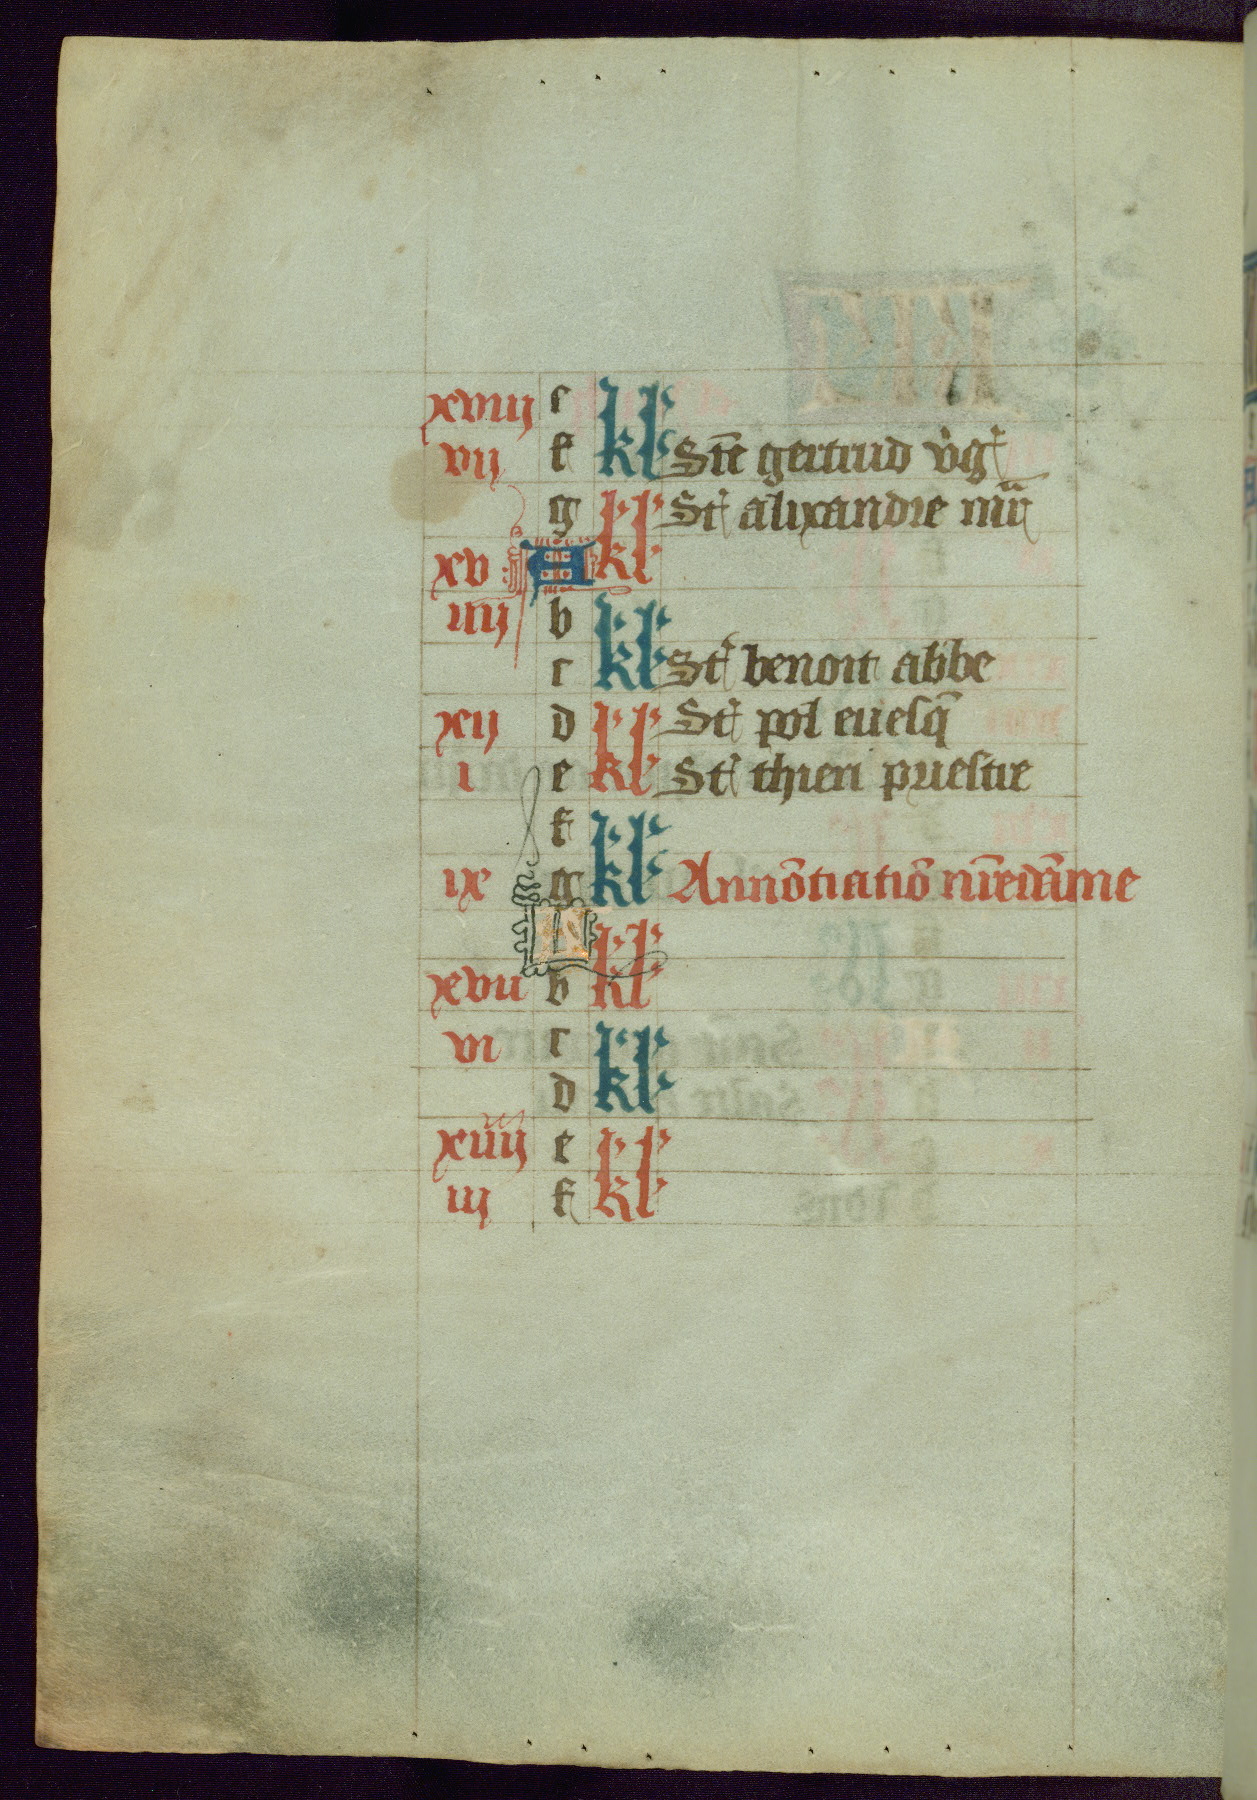 xviij e kl
vij f kl Ste gertrud v̾g᷑
g kl St᷑ alixandre mr̄
xv A kl
iiij b kl
c kl St᷑ benoit abbe
xij d kl St᷑ pol euesq̄
i e kl St᷑ thieri pruestre
f kl
ix g kl Annōtiatiō nr̄edāme
A kl
xvii b kl
vi c kl
d kl
xiiij e kl
iij f kl